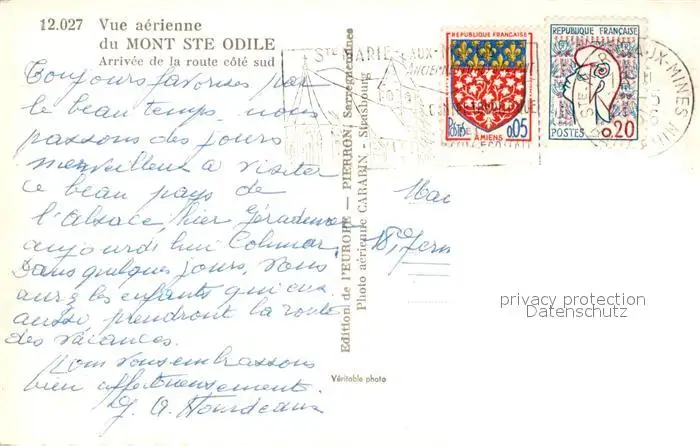 12.027 Vue aérienne
du MONT STE ODILE
Arrivée de la route côté sud
Toujours favorisés par
le beau temps, nous
passons des jours
merveilleux à visiter
ce beau pays de
l'Alsace, hier Gérardmer
aujourd'hui Colmar.
Dans quelques jours, vous
aurez les enfants qui eux
aussi prendront la route
des vacances.
Nous vous embrassons
bien affectueusement.
Edition de l'EUROPE — PIERRON, Sarreguemines
Photo aérienne CARABIN - Strasbourg
Véritable photo
STE MARIE-AUX-M
REPUBLIQUE FRANÇAISE
POSTES 0,05
AMIENS
REPUBLIQUE FRANÇAISE
POSTES 0,20
AUX-MINES
privacy protection
Datenschutz